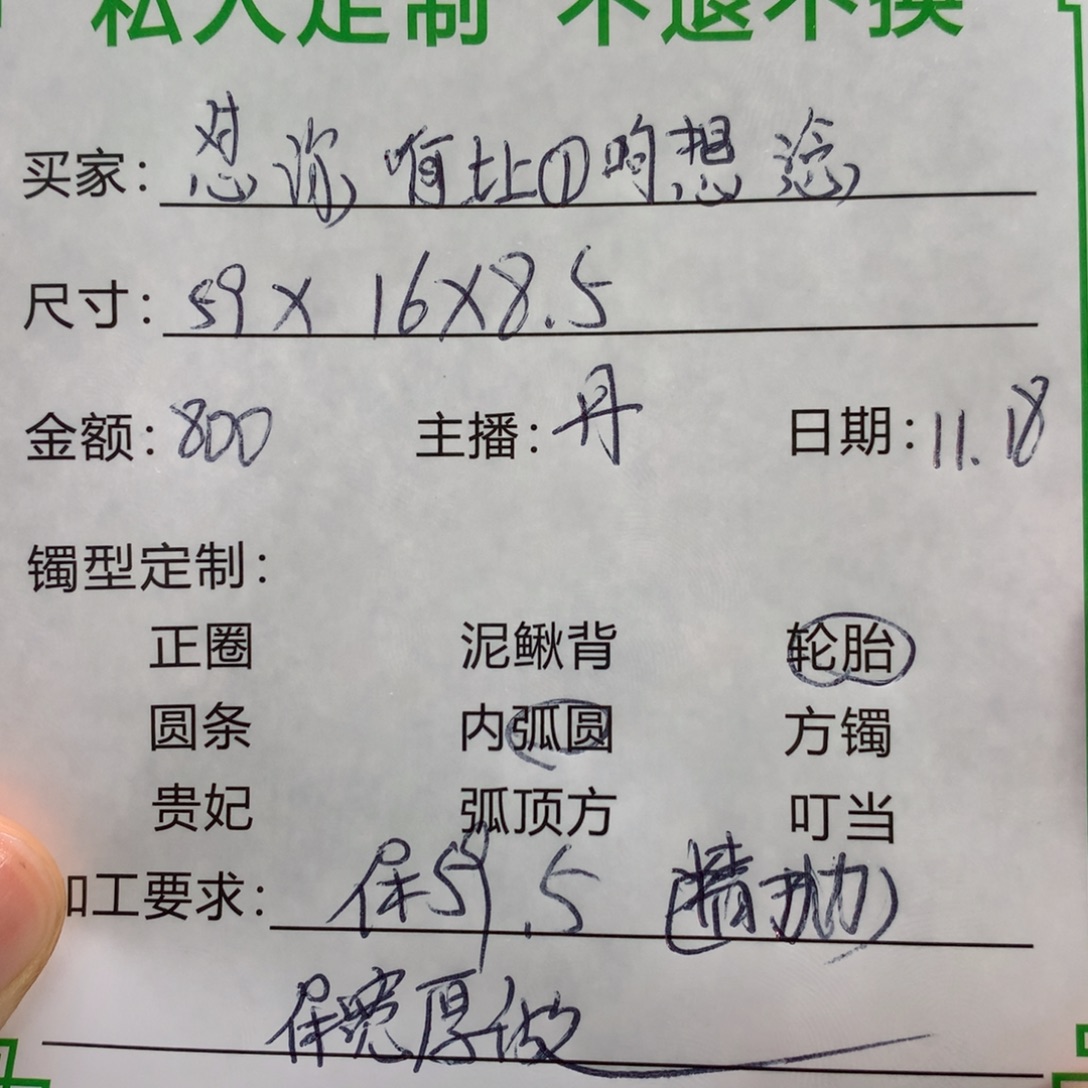 私人定制 不退不换
买家：怼你有址①的想念
尺寸：59×16×8.5
金额：800 主播：丹 日期：11.18
镯型定制：
正圈 泥鳅背 轮胎
圆条 内弧圆 方镯
贵妃 弧顶方 叮当
加工要求：保59.5（精抛）
保宽厚做